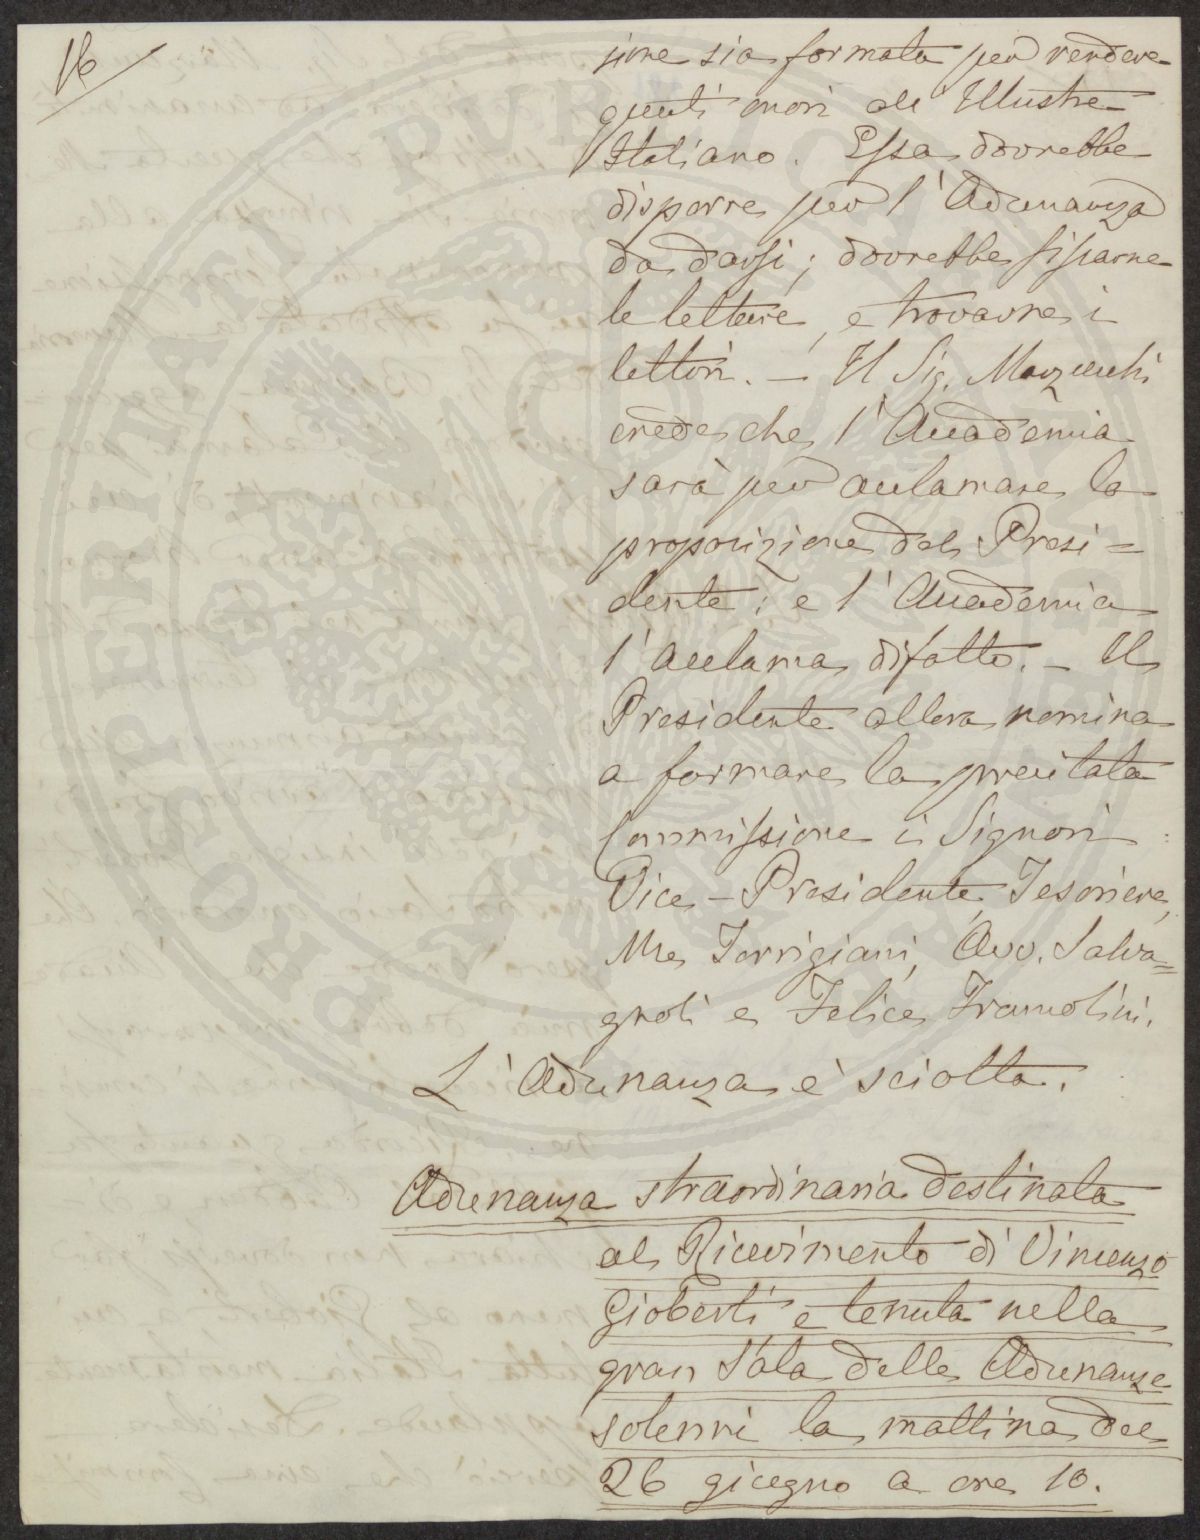 16
sione sia formata per rendere
questi onori all'Illustre
Italiano. Essa dovrebbe
disporre per l'Adunanza
da darsi; dovrebbe fissarne
le letture, e trovarne i
lettori. — Il Sig. Marzucchi
crede che l'Accademia
sarà per acclamare la
proposizione del Presi=
dente; e l'Accademia
l'acclama difatto. — Il
Presidente allora nomina
a formare la precitata
Commissione i Signori
Vice-Presidente, Tesoriere,
Mse Torrigiani, Avv. Salva=
gnoli e Felice Tramolini.
L'Adunanza è sciolta.
Adunanza straordinaria destinata
al Ricevimento di Vincenzo
Gioberti e tenuta nella
gran Sala delle Adunanze
solenni la mattina del
26 giugno a ore 10.
PROSPERITATI PVBLICAE AVGENDAE